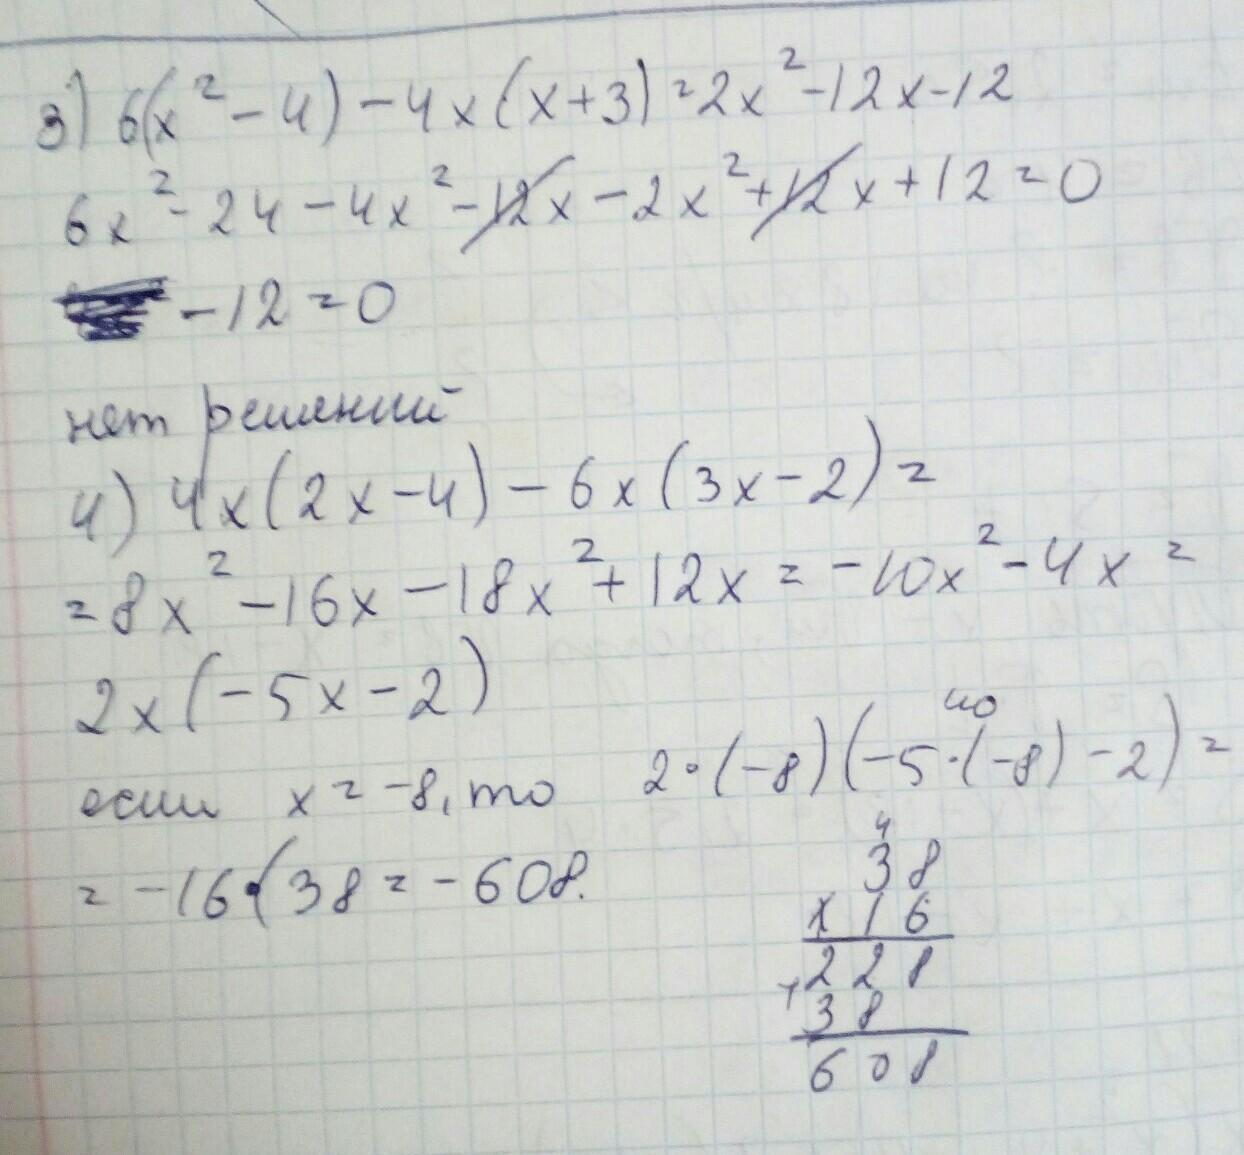 3) 6(x² - 4) - 4x(x+3) = 2x² - 12x - 12
6x² - 24 - 4x² - 12x - 2x² + 12x + 12 = 0
- 12 = 0
нет решений
4) 4x(2x - 4) - 6x(3x - 2) =
= 8x² - 16x - 18x² + 12x = -10x² - 4x =
2x(-5x - 2)
40
если x = -8, то 2·(-8)(-5·(-8) - 2) =
= -16·(38 = -608.
4
38
x 16
228
+ 38
608